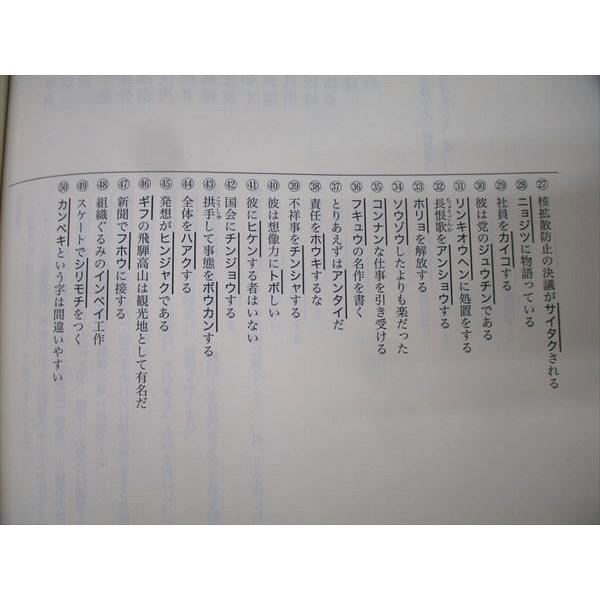 ㉗核拡散防止の決議がサイタクされる
㉘ニョジツに物語っている
㉙社員をカイコする
㉚彼は党のジュウチンである
㉛リンキオウヘンに処置をする
㉜長恨歌をアンショウする
㉝ホリョを解放する
㉞ソウゾウしたよりも楽だった
㉟コンナンな仕事を引き受ける
㊱フキュウの名作を書く
㊲とりあえずはアンタイだ
㊳責任をホウキするな
㊴不祥事をチンシャする
㊵彼は想像力にトボしい
㊶彼にヒケンする者はいない
㊷国会にチンジョウする
㊸拱手して事態をボウカンする
㊹全体をハアクする
㊺発想がヒンジャクである
㊻ギフの飛騨高山は観光地として有名だ
㊼新聞でフホウに接する
㊽組織ぐるみのインペイ工作
㊾スケートでシリモチをつく
㊿カンペキという字は間違いやすい